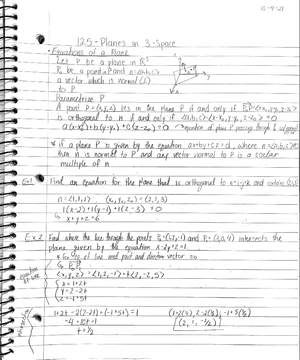 12.5 - Planes in 3-Space
• Equations of a Plane
Let P be a plane in ℝ³
P₀ be a point in P and n=⟨a,b,c⟩
a vector which is normal (⊥)
to P
Parametrize P
A point P=(x,y,z) lies in the plane P if and only if P₀P=⟨x-x₀,y-y₀,z-z₀⟩
is orthogonal to n if and only if ⟨a,b,c⟩·⟨x-x₀,y-y₀,z-z₀⟩=0
a(x-x₀)+b(y-y₀)+c(z-z₀)=0 equation of plane P passing through
* if a plane P is given by the equation ax+by+cz=d, where n=⟨a,b,c⟩
then n is normal to P and any vector normal to P is a scalar
multiple of n
Ex 1 Find an equation for the plane that is orthogonal to n=i+j+k and contains
n=⟨1,1,1⟩ (x₀,y₀,z₀)=(2,1,3)
1(x-2)+1(y-1)+1(z-3)=0
x+y+z=6
Ex 2 Find where the line through the points and P₁=(3,0,4) intersects the
plane given by the equation x-2y+z=1
need point and direction vector
equation of line
⟨x,y,z⟩=⟨1,2,-1⟩+t⟨2,-2,5⟩
x=1+2t
y=2-2t
z=-1+5t
1+2t-2(2-2t)+(-1+5t)=1
t=1/2